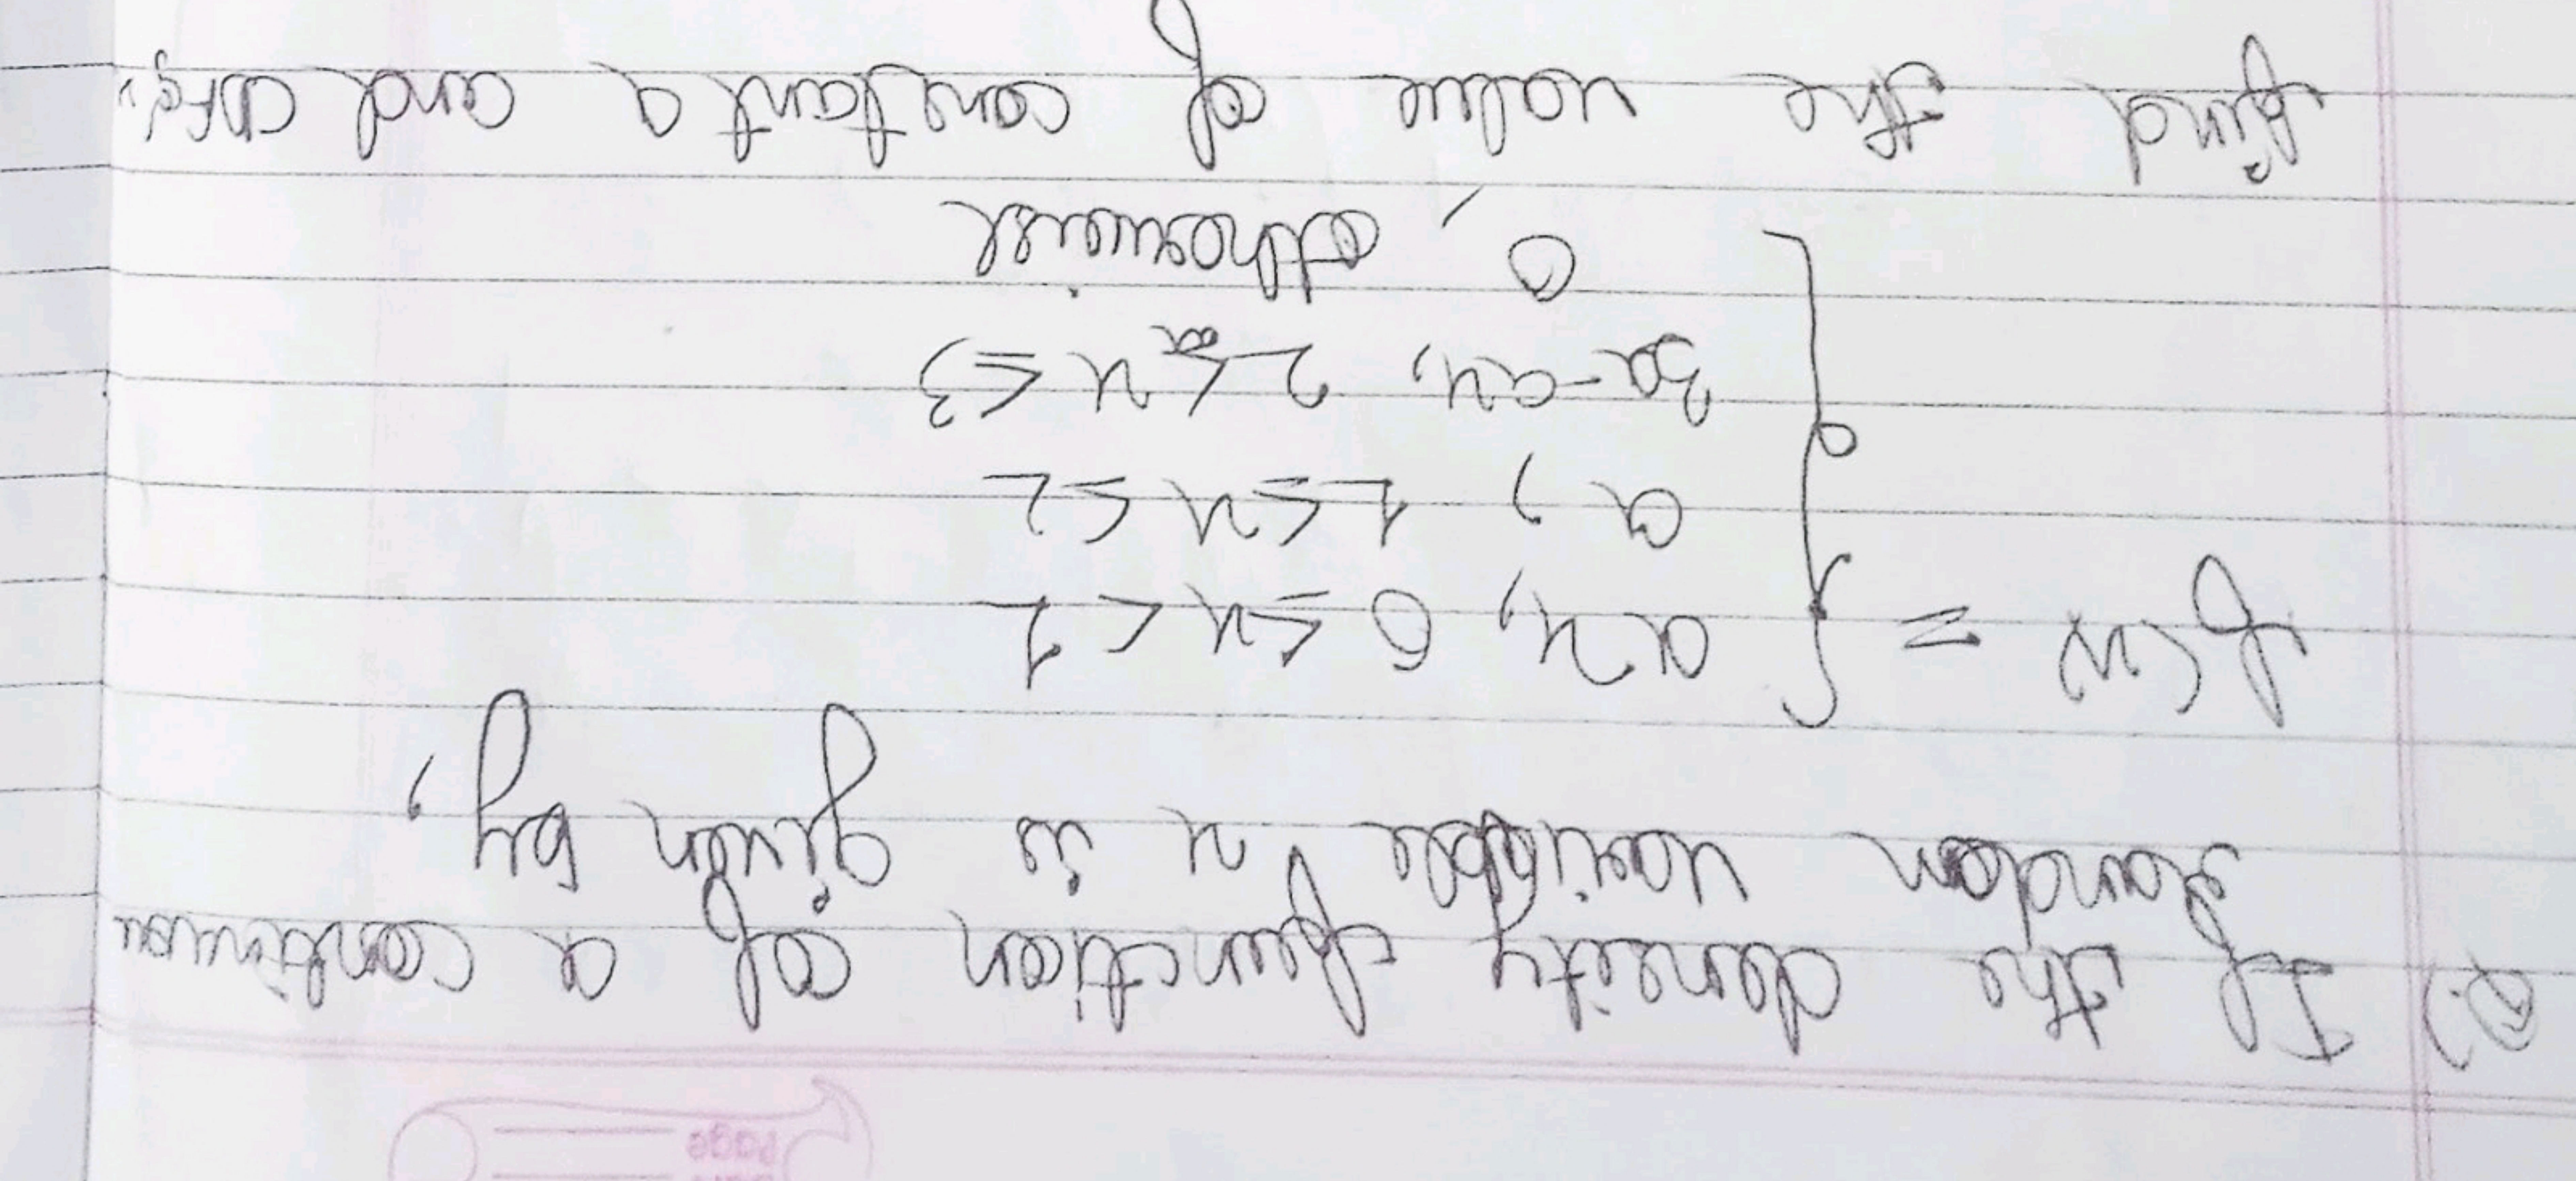 Q.) If the density function of a continuou
random variable x is given by,
f(x) = { ax, 0 ≤ x < 1
a, 1 ≤ x ≤ 2
3a - ax, 2 ≤ x ≤ 3
0, otherwise
find the value of constant a and CDF of
Page